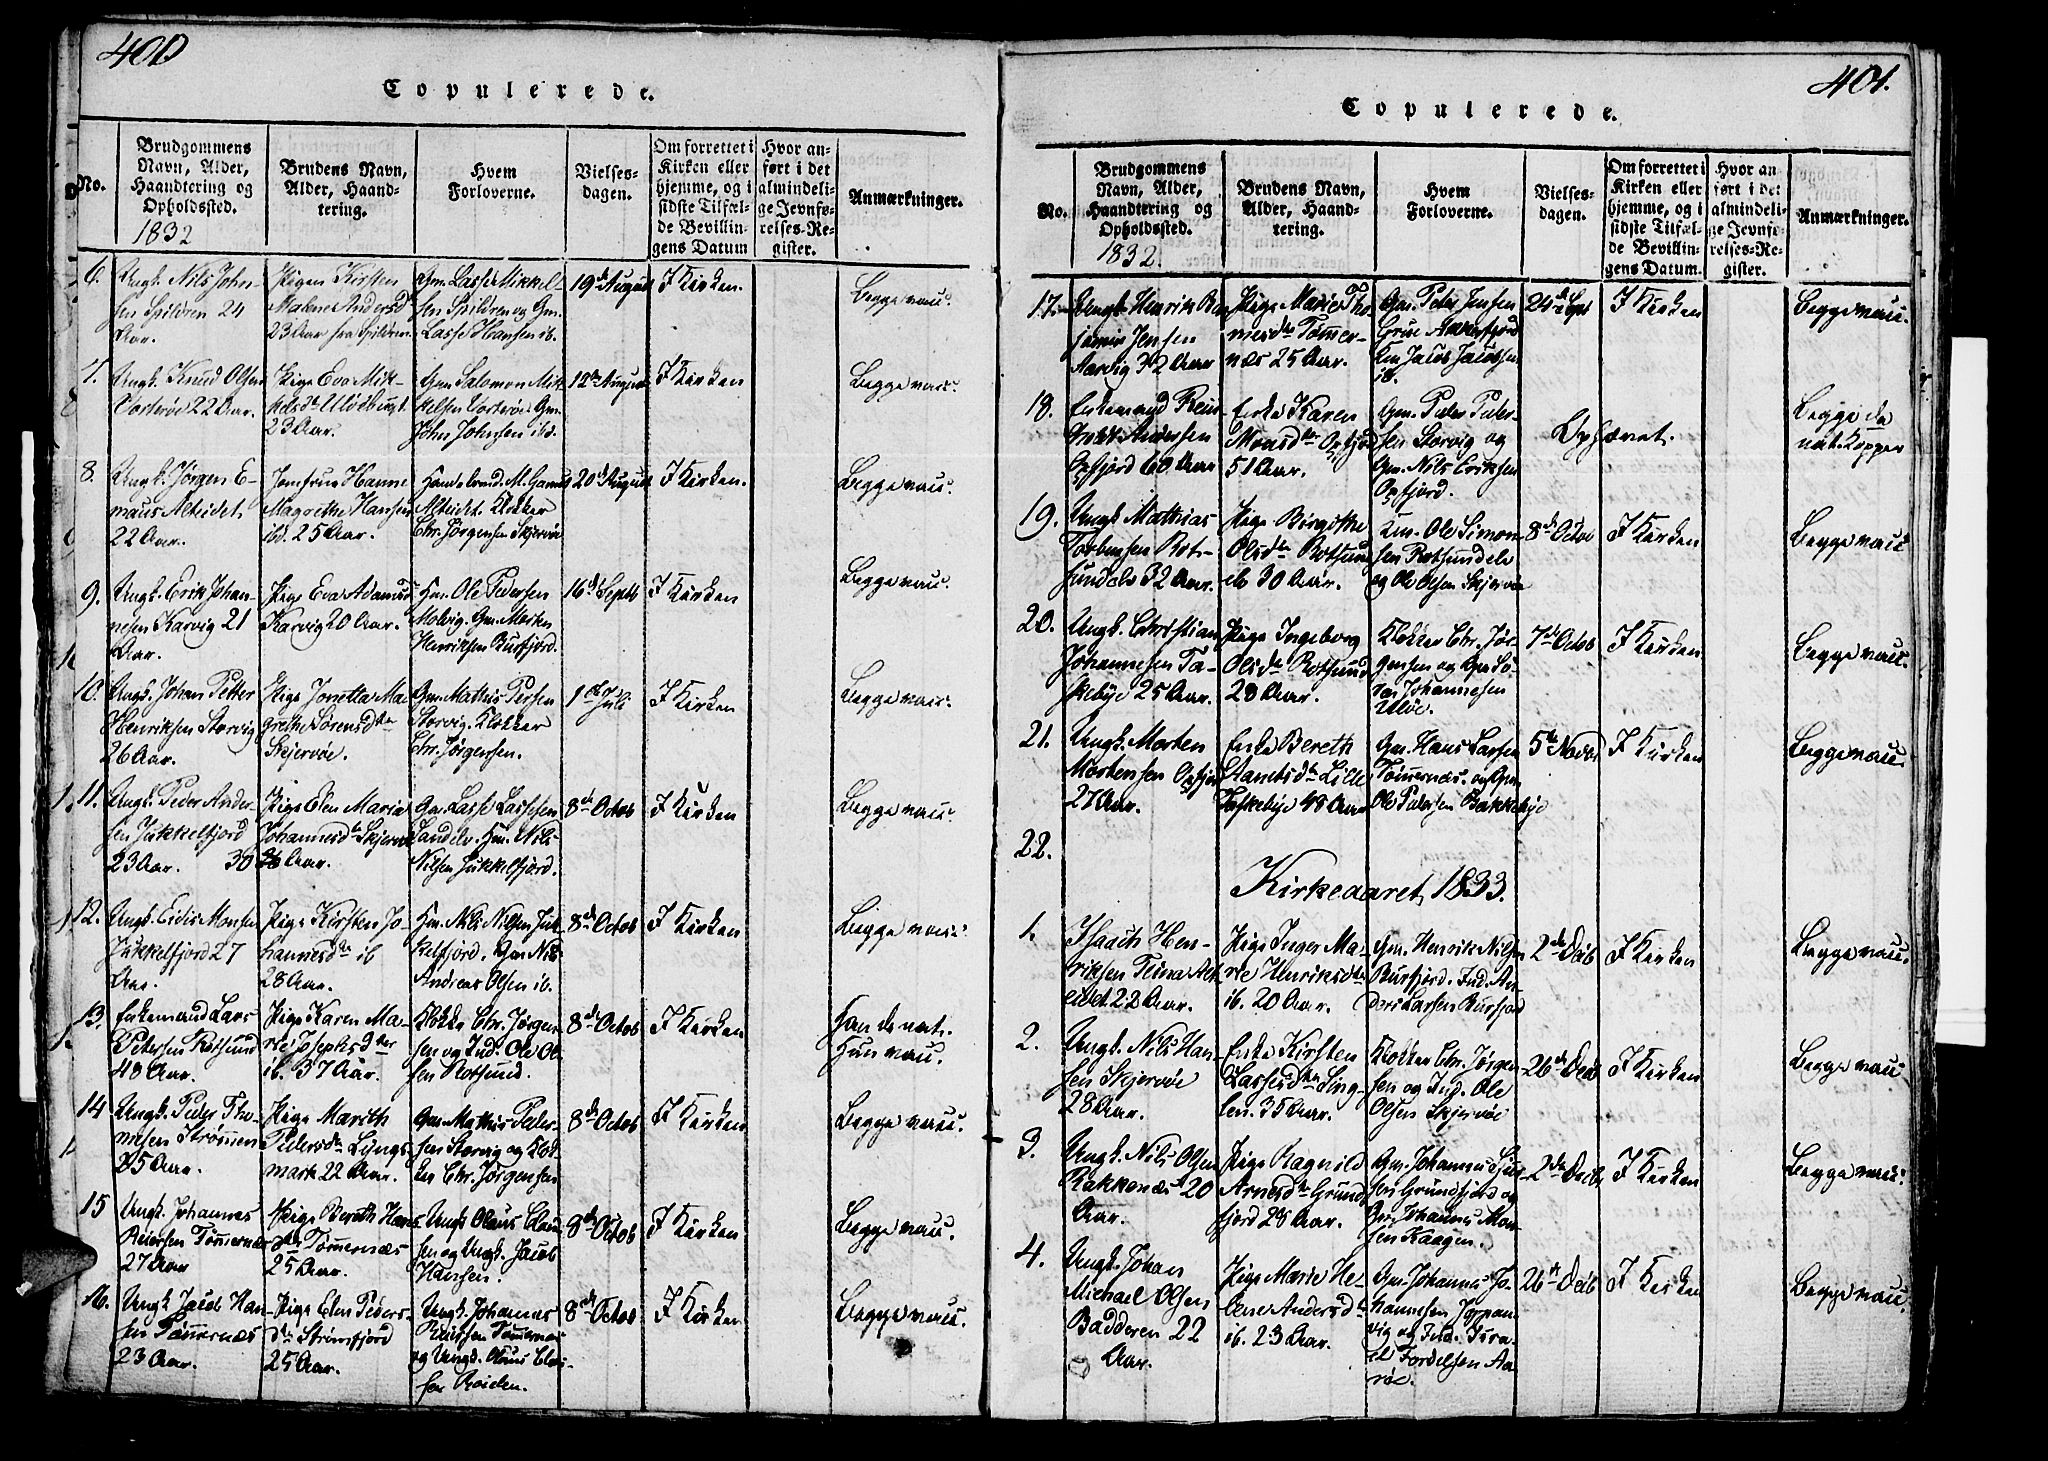 400
Copulerede.
No.
Brudgommens
Navn, Alder,
Haandtering og
Opholdssted.
1832
Brudens Navn,
Alder, Haand-
tering.
Hvem
Forloverne.
Vielses-
dagen.
Om forrettet i
Kirken eller
hjemme, og i
sidste Tilfæl-
de Bevillin-
gens Datum
Hvor an-
ført i det
almindeli-
ge Jevnfø-
relses-Re-
gister.
Anmærkninger.
6.
Ungk. Nils John-
sen Spildren 24
Aar.
Pigen Kirsten
Malene Andersd
23 Aar fra Spildren.
Gm. Lasse Mikkel-
sen Spildren og Gm.
Lasse Hansen ib.
19de August
I Kirken.
Begge vacc.
7.
Ungk. Knud Olsen
Vorterøe 22 Aar.
Pige Eva Mik-
kelsdr
23 Aar.
Gm. Salomon Mik-
kelsen Vorterøe Gm.
John Johnsen ibd.
12te August
I Kirken
Begge vacc.
8.
Ungk. Jørgen E-
maus Alteidet
22 Aar.
Jomfrue Hanne
Magrethe Hansen
ibd. 25 Aar.
Handelsmd. M. Gamst
Alteidet Klokker
Chr. Jørgensen Skjervøe
20de August
I Kirken.
Begge vacc.
9.
Ungk. Erik Johan-
nesen Karvig 21
Aar.
Pige Eva Adamsd
Karvig 20 Aar.
Gm. Ole Pedersen
Molvig. Gm. Morten
Henriksen Burfjord.
16de Septb
I Kirken
Begge vacc.
10.
Ungk. Johan Petter
Henriksen Storvig
26 Aar.
Pige Jonetta Ma-
grethe Sørensdtr
Skjervøe.
Gm. Mathis Persen
Storvig. Klokker
Chr. Jørgensen.
1ste Juli
I Kirken
Begge vacc.
11.
Ungk. Peder Ander-
sen Jøkkelfjord
23 Aar.
Pige Elen Maria
Johannesdtr Skjervøe
30 Aar.
Gm. Lasse Lassesen
Sandelv. Gm. Nils
Nilsen Jøkkelfjord.
8de Octob
I Kirken
Begge vacc.
12.
Ungk. Eidis Monsen
Jøkkelfjord 27
Aar.
Pige Kirsten Jo-
hannesdtr ib
28 Aar.
Gm. Nils Nilsen Jøk-
kelfjord. Gm Nils
Andreas Olsen ib.
8de Octob
I Kirken
Begge vacc.
13.
Enkemand Lars
Petersen Rotsund
48 Aar.
Pige Karen Ma-
rie Josephsdtter
ib. 37 Aar.
Klokke Chr. Jørgen-
sen og Ind. Ole Ol-
sen Rotsund.
8de Octob
I Kirken
Han de nat.
Hun vacc.
14
Ungk. Peder Tho-
mesen Strømmen
25 Aar.
Pige Marith
Pedersdtr Lyngs-
mark 22 Aar.
Gm. Mathis Peder-
sen Storvig og Klok-
ker Chr. Jørgensen
8de Octob
I Kirken
Begge vacc.
15
Ungk. Johannes
Reiersen Tømmernæs
27 Aar
Pige Bereth Hans
dtr Tømmernæs
25 Aar.
Ungk Olaus Claus-
sen og Ungk. Jacob
Hansen.
8de Octob
I Kirken
Begge vacc.
16.
Ungk Jacob Han-
sen Tømmernæs
23 Aar.
Pige Elen Peders-
dtr Strømfjord
25 Aar.
Ungk. Johannes
Reiersen Tømmernæs
og Ungk. Olaus Claus-
sen Reiden.
8de Octob
I Kirken
Begge vacc.
401.
Copulerede.
No.
Brudgommens
Navn, Alder,
Haandtering og
Opholdssted.
1832.
Brudens Navn,
Alder, Haand-
tering.
Hvem
Forloverne.
Vielses-
dagen.
Om forrettet i
Kirken eller
hjemme, og i
sidste Tilfæl-
de Bevillin-
gens Datum.
Hvor an
ført i det
almindeli-
ge Jevnfø-
relses-Re-
gister.
Anmærkninger.
17.
Ungk. Henrik Ben-
jamin Jensen
Aarvig 32 Aar
Pige Marie Tho-
mesdtr Tømmer-
næs 25 Aar.
Gm. Peter Jensen
Grue
Gm Jacob Jacobsen
ib.
24de Sept
I Kirken
Begge vacc.
18.
Enkemand Rein-
holdt Andersen
Oxfjord 60 Aar
Enke Karen
Monsdtr Oxfjord
51 Aar.
Gm. Peder Peder-
sen Storvig og
Gm. Nils Eriksen
Oxfjord.
Ophævet.
Begge de
nat. Kopper
19.
Ungk Mathias
Torbensen Rot-
sundelv 32 Aar.
Pige Birgithe
Olsdtr Rotsund-
elv 30 Aar.
Gm. Ole Simon-
sen Rotsundelv
og Ole Olsen Skjervøe
8de Octob
I Kirken
Begge vacc
20.
Ungk. Christian
Johannesen Ta-
skebye 25 Aar.
Pige Ingeborg
Olsdtr Rotsund
28 Aar.
Klokker Chr. Jør-
gensen og Gm. Sø-
ren Johannesen
Uløe.
7de Octob
I Kirken
Begge vacc.
21.
Ungk. Morten
Mortensen Oxfjor
27 Aar.
Enke Bereth
Lille
Taskebye 48 Aar
Gm. Hans Larsen
Tømmernæs. og Gm
Ole Pedersen Bakkebye
5te Novbr
I Kirken
Begge vacc.
22.
Kirkeaaret 1833.
1.
Isach Hen-
riksen Alt-
eidet 22 Aar.
Pige Inger Ma-
rie Henriksdtr
ib. 20 Aar.
Gm. Henrik Nilsen
Burfjord. Ind. An-
ders Larsen Burfjord
2de Decb
I Kirken
Begge vacc.
2.
Ungk. Nils Han-
sen Skjervøe
28 Aar.
Enke Kirsten
Lassesdtr Sing-
len. 35 Aar.
Klokker Chr. Jørgen-
sen og Ind. Ole
Olsen Skjervøe
26de Decb
I Kirken
Begge vacc
3.
Ungk. Nils Olsen
Rakkenæs 20
Aar.
Pige Ragnild
Arnesdtr Grund-
fjord 28 Aar.
Gm. Johannes
sen Grundfjord og
Gm. Johannes Mon-
sen Kaagen.
2de Decb
I Kirken
Begge vacc.
4.
Ungk. Johan
Michael Olsen
Badderen 22
Aar.
Pige Marie He-
lene Andersdtr
ib. 23 Aar.
Gm. Johannes Jo-
hannesen
vig og Ind. Isra-
el Fordelsen Aa-
røe.
26de Decb
I Kirken
Begge vacc.